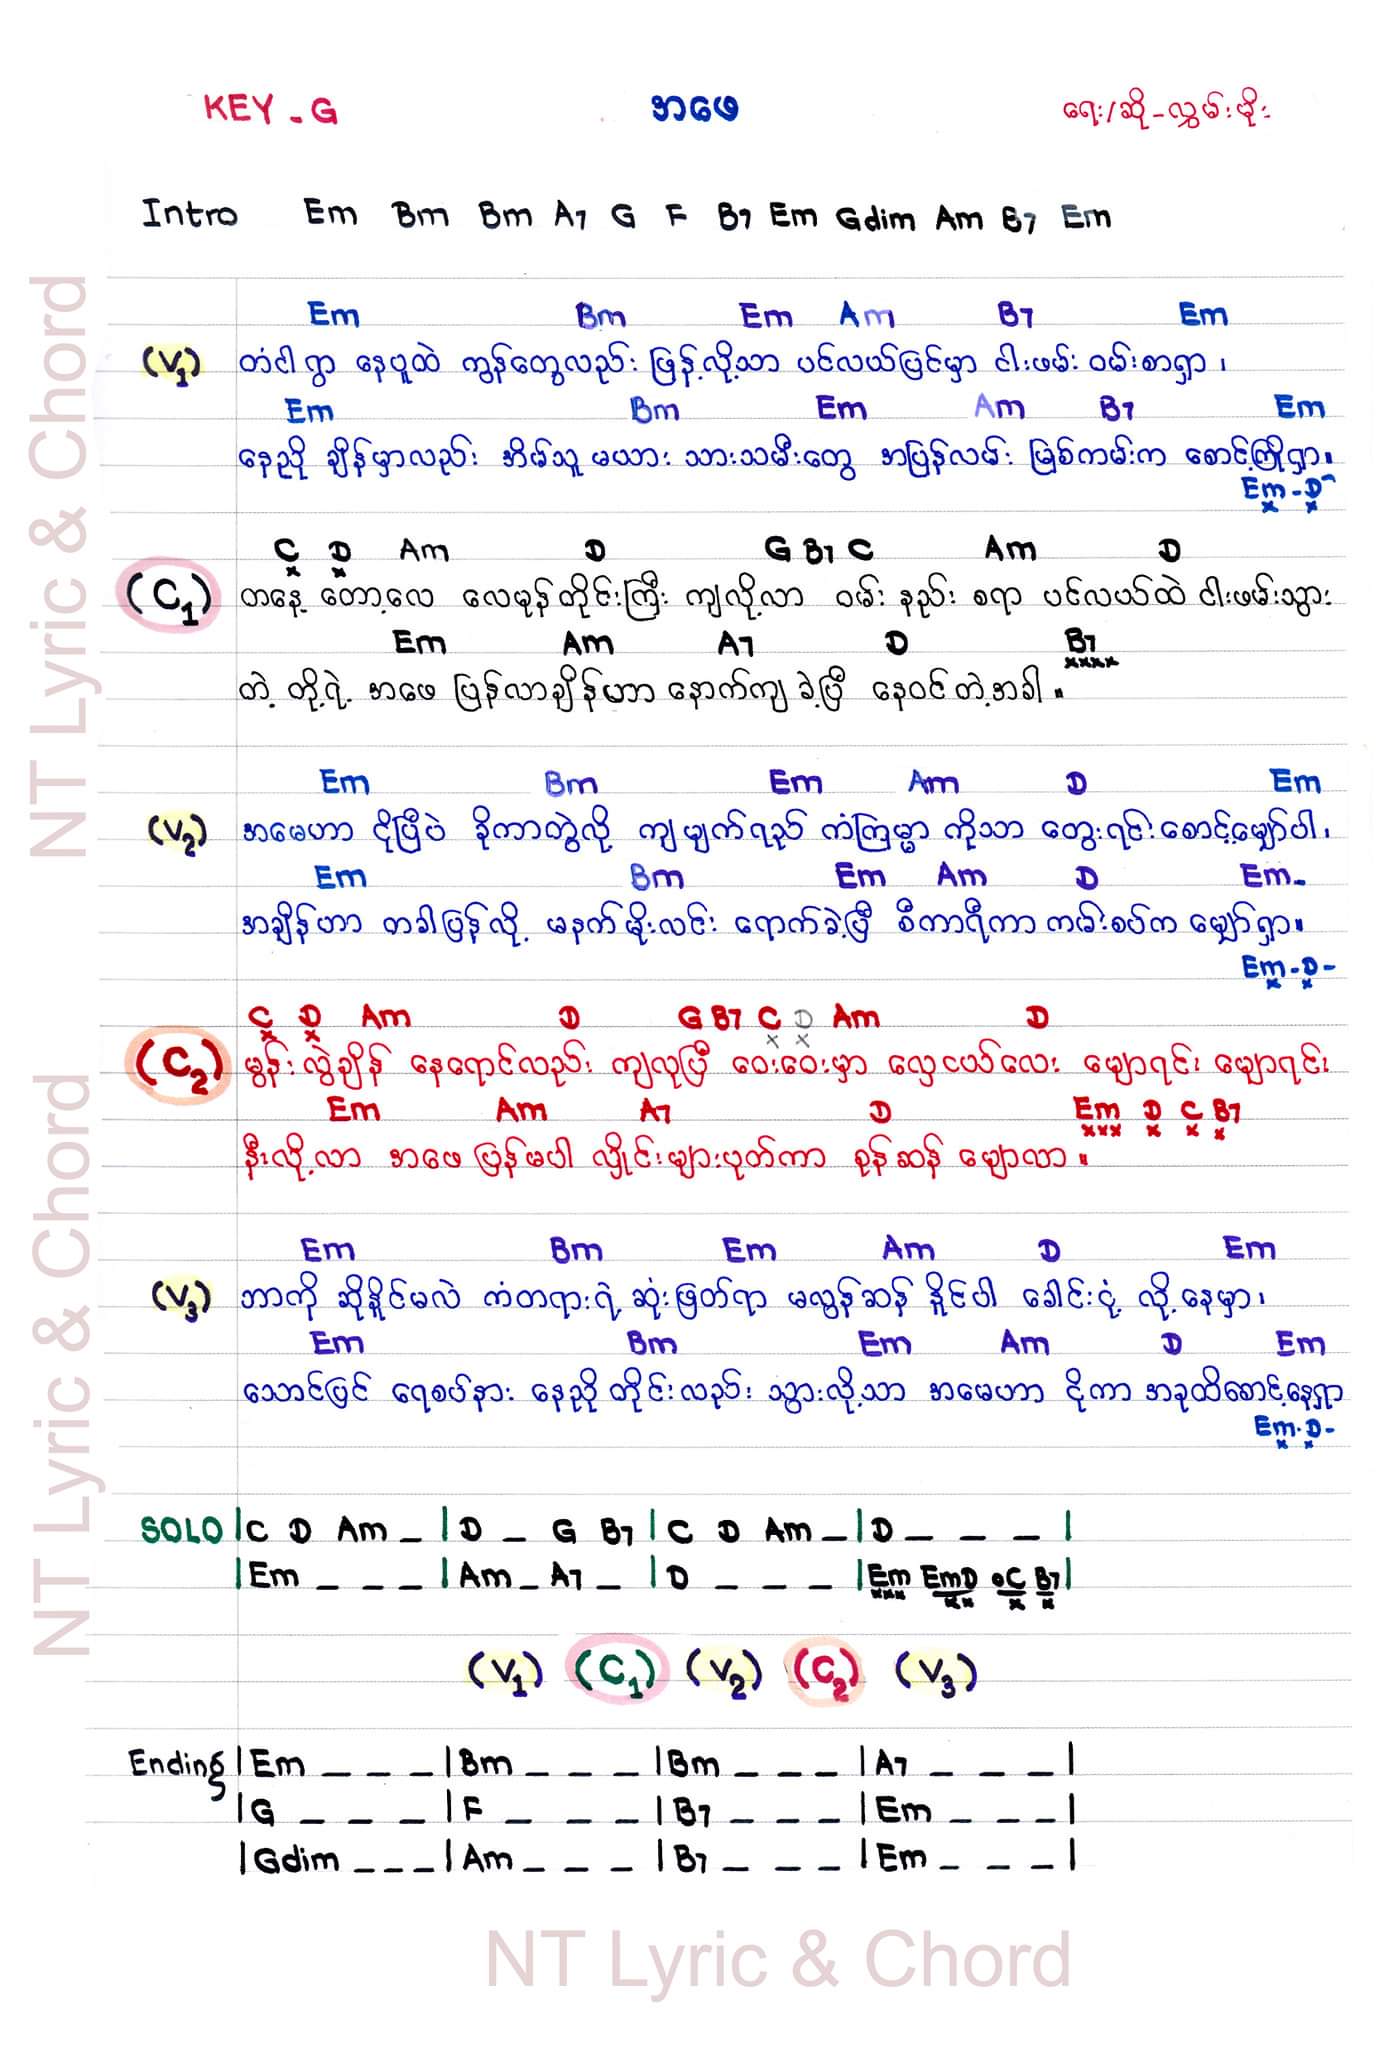 KEY - G အဖေ ရေး/ဆို - လွှမ်းမိုး
Intro Em Bm Bm A7 G F B7 Em Gdim Am B7 Em
Em Bm Em Am B7 Em
(V1) တံငါရွာ နေပူထဲ ကွန်တွေလည်း ဖြန့်လို့သာ ပင်လယ်ပြင်မှာ ငါးဖမ်း ဝမ်းစာရှာ ၊
Em Bm Em Am B7 Em
နေညို ချိန်မှာလည်း အိမ်သူ မယား သားသမီးတွေ အပြန်လမ်း မြစ်ကမ်းက စောင့်ကြိုရှာ ။
Em - D -
C D Am D G B7 C Am D
(C1) တနေ့ တော့လေ လေမုန်တိုင်းကြီး ကျလို့လာ ဝမ်း နည်း စရာ ပင်လယ်ထဲ ငါးဖမ်းသွား
Em Am A7 D B7
တဲ့ တို့ရဲ့ အဖေ ပြန်လာချိန်ဟာ နောက်ကျ ခဲ့ပြီ နေဝင်တဲ့အခါ ။
Em Bm Em Am D Em
(V2) အမေဟာ ငိုပြီပဲ ခိုကာတွဲလို့ ကျမျက်ရည် ကံကြမ္မာ ကိုသာ တွေးရင်းစောင့်မျှော်ပါ ၊
Em Bm Em Am D Em -
အချိန်ဟာ တခါပြန်လို့ မနက်မိုးလင်း ရောက်ခဲ့ပြီ စီကာရီကာ ကမ်းစပ်က မျှော်ရှာ ။
Em - D -
C D Am D G B7 C D Am D
(C2) မွန်းလွဲချိန် နေရောင်လည်း ကျလုပြီ ဝေးဝေးမှာ လှေငယ်လေး မျောရင်း မျောရင်း
Em Am A7 D Em D C B7
နီးလို့လာ အဖေ ပြန်မပါ လှိုင်းများပုတ်ကာ စုန်ဆန် မျောလာ ။
Em Bm Em Am D Em
(V3) ဘာကို ဆိုနိူင်မလဲ ကံတရားရဲ့ ဆုံးဖြတ်ရာ မလွန်ဆန် နိူင်ပါ ခေါင်းငုံ့ လို့နေမှာ ၊
Em Bm Em Am D Em
သောင်ပြင် ရေစပ်နား နေညို တိုင်းလည်း သွားလို့သာ အမေဟာ ငိုကာ အခုထိစောင့်နေရှာ
Em - D -
SOLO | C D Am _ | D _ G B7 | C D Am _ | D _ _ _ |
| Em _ _ _ | Am _ A7 _ | D _ _ _ | Em EmD •C B7 |
(V1) (C1) (V2) (C2) (V3)
Ending | Em _ _ _ | Bm _ _ _ | Bm _ _ _ | A7 _ _ _ |
| G _ _ _ | F _ _ _ | B7 _ _ _ | Em _ _ _ |
| Gdim _ _ _ | Am _ _ _ | B7 _ _ _ | Em _ _ _ |
NT Lyric & Chord
NT Lyric & Chord
NT Lyric & Chord